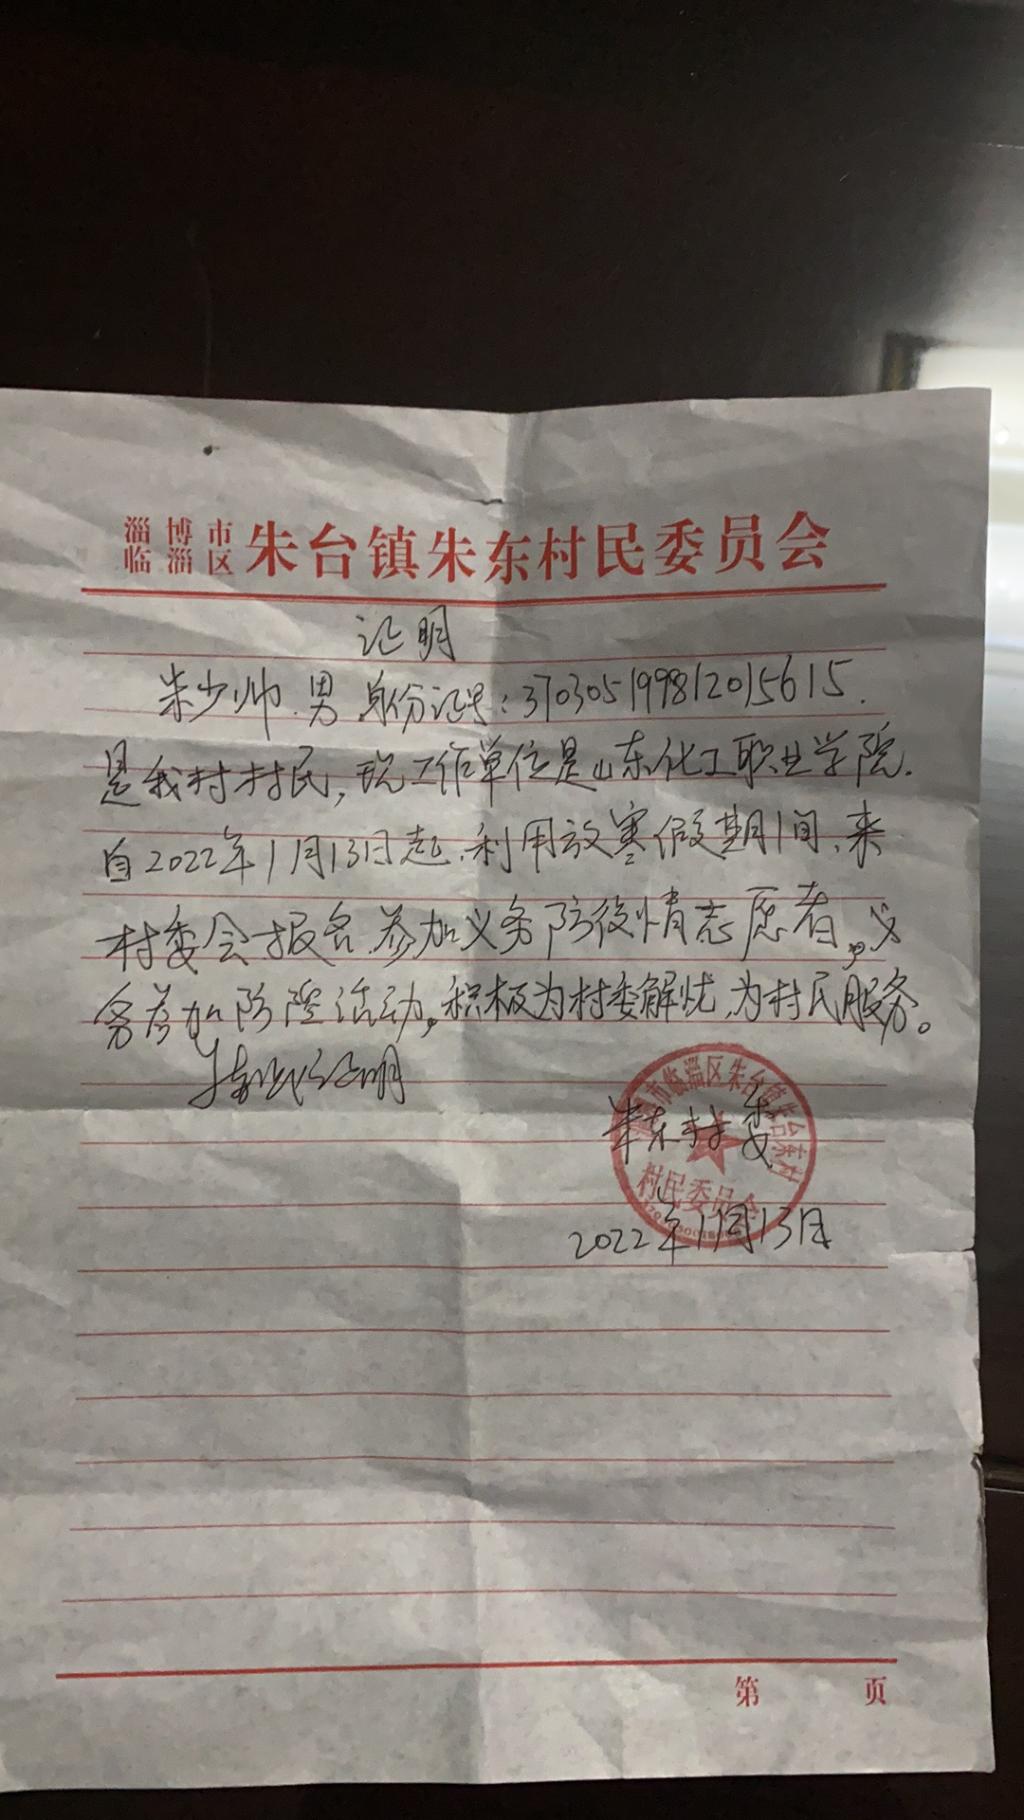 淄博市
临淄区 朱台镇朱东村民委员会
证明
朱少帅.男 身份证号:370305199812015615.
是我村村民,现工作单位是山东化工职业学院.
自2022年1月13日起.利用放寒假期间.来
村委会报名.参加义务防役情志愿者。义
务参加防控活动。积极为村委解忧.为村民服务。
特此证明
市临淄区朱台镇朱台东村
村民委员会
朱东村委
2022年1月13日
第 页